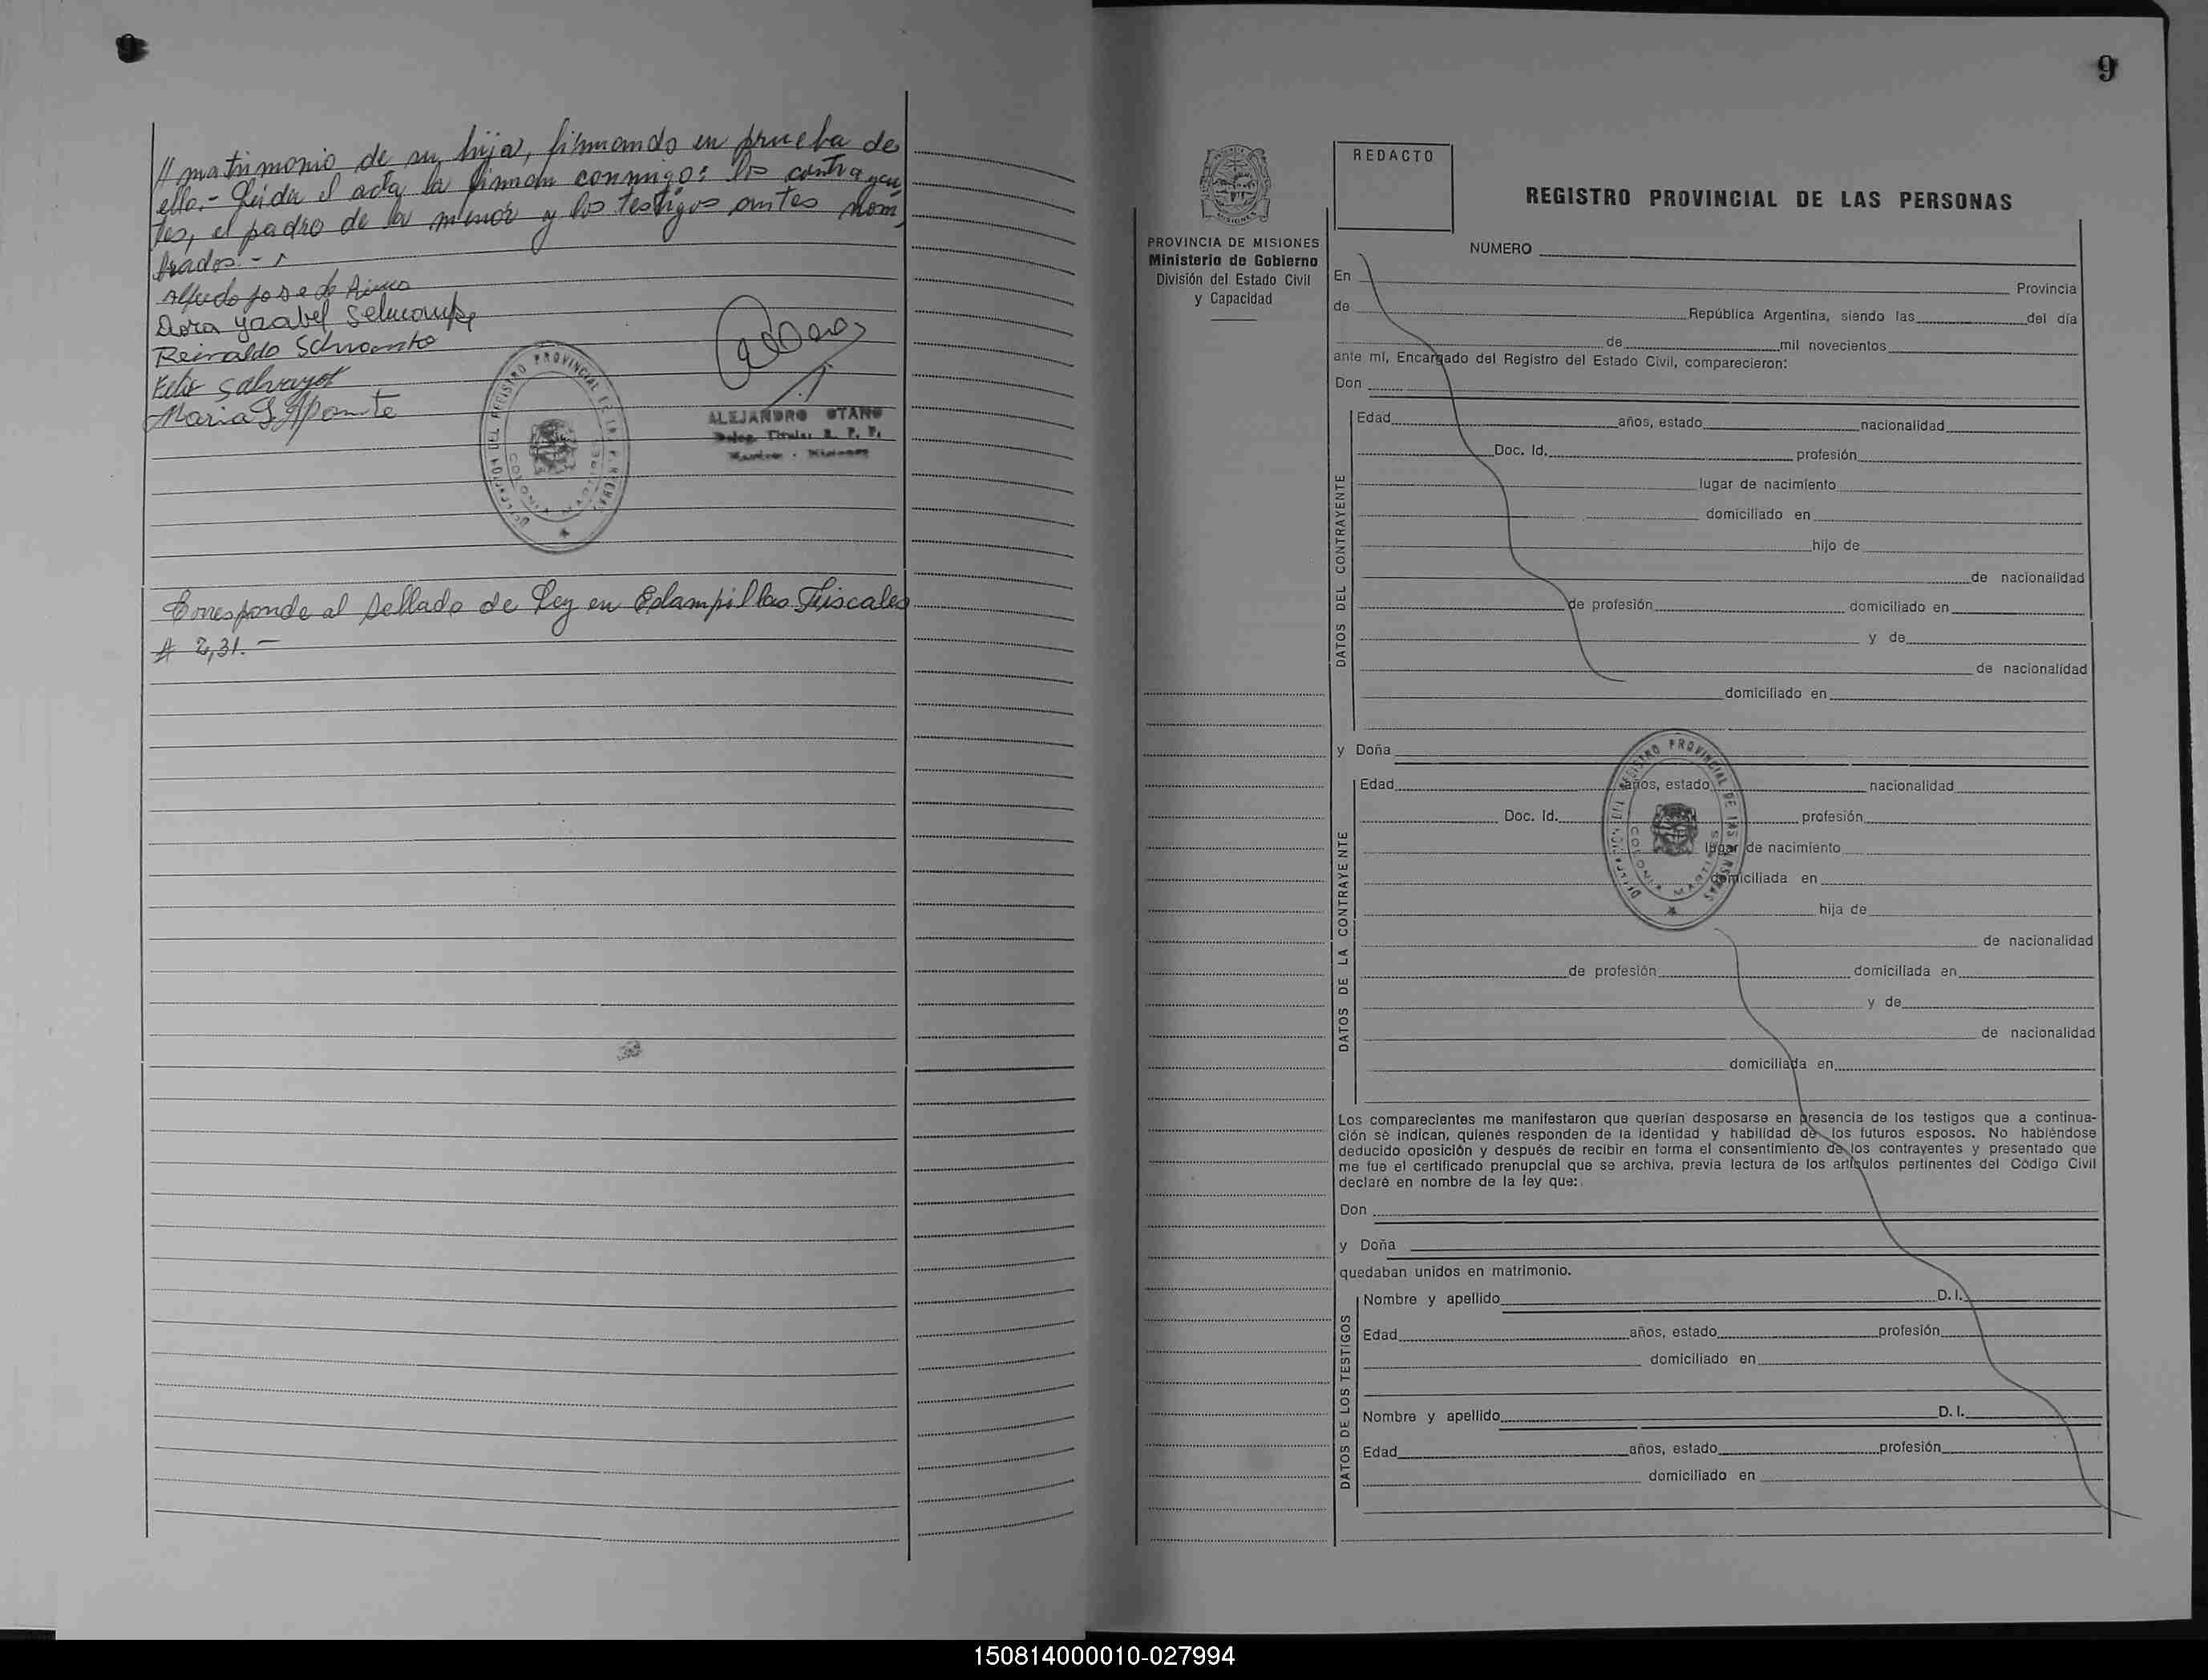 // matrimonio de su hija, firmando en prueba de
ello.- Leída el acta la firman conmigo: los contrayen
tes, el padre de la menor y los testigos antes nom
brados.-
Alfredo Jose de
Dora Ysabel
Reinaldo
Felix
Maria Aponte
ALEJANDRO OTANO
Deleg. Titular R. P. P.
Misiones
DELEGACION DEL REGISTRO PROVINCIAL DE LAS PERSONAS
COLONIA MARTIRES
Corresponde al Sellado de Ley en Estampillas Fiscales
A 2,31.-
9
PROVINCIA DE MISIONES
Ministerio de Gobierno
División del Estado Civil
y Capacidad
REDACTO
REGISTRO PROVINCIAL DE LAS PERSONAS
NUMERO
En Provincia
de República Argentina, siendo las del día
de mil novecientos
ante mí, Encargado del Registro del Estado Civil, comparecieron:
Don
DATOS DEL CONTRAYENTE
Edad años, estado nacionalidad
Doc. Id. profesión
lugar de nacimiento
domiciliado en
hijo de
de nacionalidad
de profesión domiciliado en
y de
de nacionalidad
domiciliado en
y Doña
DATOS DE LA CONTRAYENTE
Edad años, estado nacionalidad
Doc. Id. profesión
lugar de nacimiento
domiciliada en
hija de
de nacionalidad
de profesión domiciliada en
y de
de nacionalidad
domiciliada en
DELEGACION DEL REGISTRO PROVINCIAL DE LAS PERSONAS
COLONIA MARTIRES
Los comparecientes me manifestaron que querían desposarse en presencia de los testigos que a continua-
ción se indican, quienes responden de la identidad y habilidad de los futuros esposos. No habiéndose
deducido oposición y después de recibir en forma el consentimiento de los contrayentes y presentado que
me fue el certificado prenupcial que se archiva, previa lectura de los artículos pertinentes del Código Civil
declaré en nombre de la ley que:
Don
y Doña
quedaban unidos en matrimonio.
DATOS DE LOS TESTIGOS
Nombre y apellido D. I.
Edad años, estado profesión
domiciliado en
Nombre y apellido D. I.
Edad años, estado profesión
domiciliado en
150814000010-027994